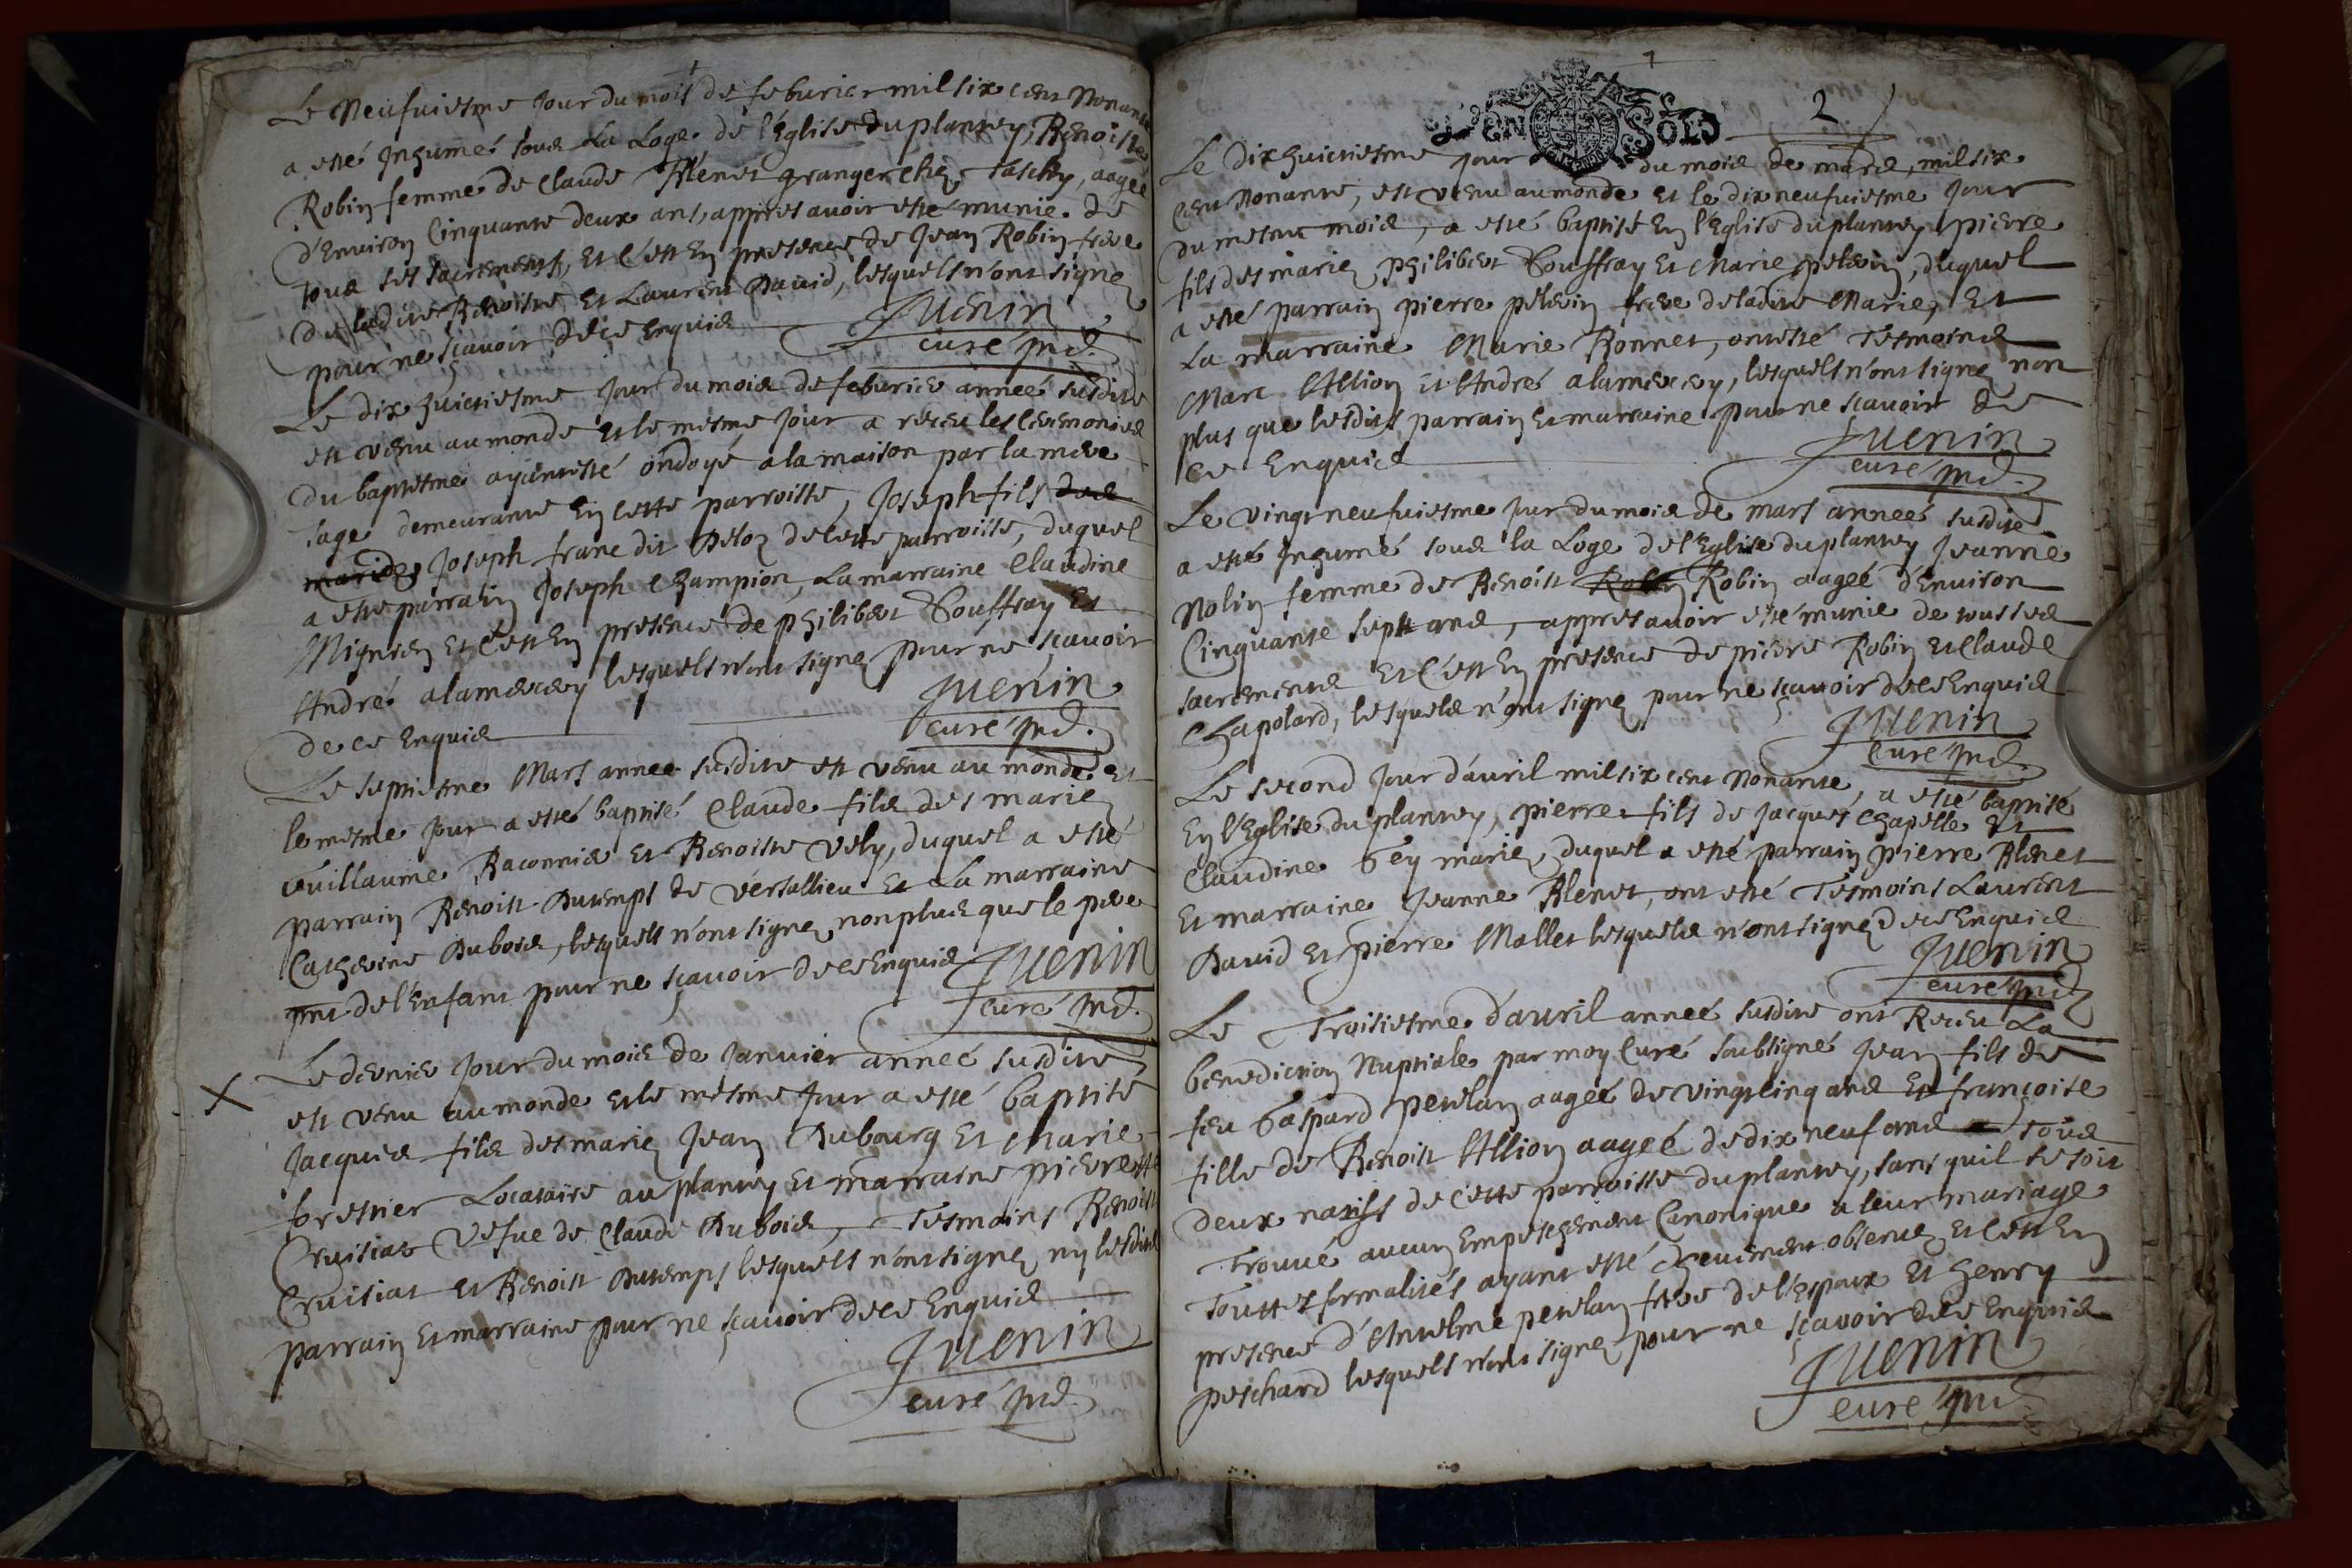 Le Neufuiesme Jour du mois de feburier mil six cent Nonante
a esté Inhumé soub La Loge de l'Eglise du plantey, Benoiste
Robin femme de Claude Blenet granger chez Taschy, aagée
d'Environ Cinquante deux ans, appres auoir esté munie de
tous ses sacrements, Et c'est En presence de Jean Robin frere
de ladite Benoiste Et Laurent Dauid, lesquels n'ont signez
pour ne sçauoir de ce Enquis
Juenin
curé jnd.
Le dix huictiesme Jour du mois de feburier anneé susdite
est venu au monde et le mesme Jour a receu les Ceremonies
du baptesme ayant esté ondoyé a la maison par la mere
sage demeurante En cette parroisse, Joseph fils des
mariez Joseph franc dit Deloz de cette parroisse, duquel
a esté parrain Joseph Champion, La marraine Claudine
Mignien Et c'est En presence de philibert Bouffray Et
André alamercery lesquels n'ont signez pour ne sçauoir
de ce Enquis
Juenin
curé jnd.
Le septiesme Mars anneé susdite est venu au monde et
le mesme Jour a esté baptisé Claude fils des mariez
Guillaume Raconnis Et Benoiste Vely, duquel a esté
parrain Benoist Dutemps de Versallieu Et La marraine
Catherine Dubois, lesquels n'ont signez non plus que le pere
pnt de l'Enfant pour ne sçauoir de ce Enquis
Juenin
curé jnd.
X Le dernier Jour du mois de Januier anneé susdite
est venu au monde et le mesme Jour a esté baptisé
Jacquis fils des mariez Jean Dubourg Et Marie
forestier Locataire au plantey Et marraine pierrette
Cruisiat Vefue de Claude Dubois, Tesmoins Benoist
Cruisiat Et Benoist Dutemps lesquels n'ont signez ny lesdits
parrain Et marraine pour ne sçauoir de ce Enquis
Juenin
curé jnd.
2
SOLS
Le dix huictiesme jour du mois de mars, mil six
cent Nonante, est venu au monde et le dix neufuiesme Jour
du mesme mois, a esté baptisé En l'Eglise du plantey pierre
fils des mariez philibert Bouffray Et Marie pelerin, duquel
a esté parrain pierre pelerin frere de ladite Marie, Et
La marraine Marie Bonnet, ont esté Tesmoins
Marc Allion Et André alamercery, lesquels n'ont signez non
plus que lesdits parrain Et marraine pour ne sçauoir de
ce Enquis
Juenin
curé jnd.
Le vingt neufuiesme Jour du mois de mars anneé susdite
a esté Inhumé soub la Loge de l'Eglise du plantey Jeanne
Nolin femme de Benoist Robin Robin aageé d'Environ
Cinquante sept ans, appres auoir esté munie de tous ses
sacrements Et c'est En presence de pierre Robin Et Claude
Chapolard, lesquels n'ont signez pour ne sçauoir de ce Enquis
Juenin
Curé jnd.
Le second Jour d'auril mil six cent Nonante, a esté baptisé
En l'Eglise du plantey, pierre fils de Jacques Chapelle Et
Claudine Fey mariez, duquel a esté parrain pierre Blenet
Et marraine Jeanne Blenet, ont esté Tesmoins Laurent
Dauid Et pierre Mallet lesquels n'ont signez de ce Enquis
Juenin
curé jnd
Le Troisiesme d'auril anneé susdite ont Receu La
benediction Nuptiale par moy Curé soubsigné Jean fils de
feu Gaspard perelan aageé de vingt cinq ans Et françoise
fille de Benoist Allion aageé de dix neuf ans tous
deux natifs de cette parroisse du plantey, sans quil se soit
Trouué aucun Empeschement Canonique a leur mariage
Touttes formalités ayant esté deuement obseruez et c'est En
presence d'Antelme perelan frere de l'Espoux Et henry
peschard lesquels n'ont signez pour ne sçauoir de ce Enquis
Juenin
curé jnd